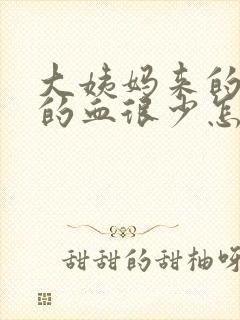 大姨妈来的
的血很少怎
甜甜的甜柚呀